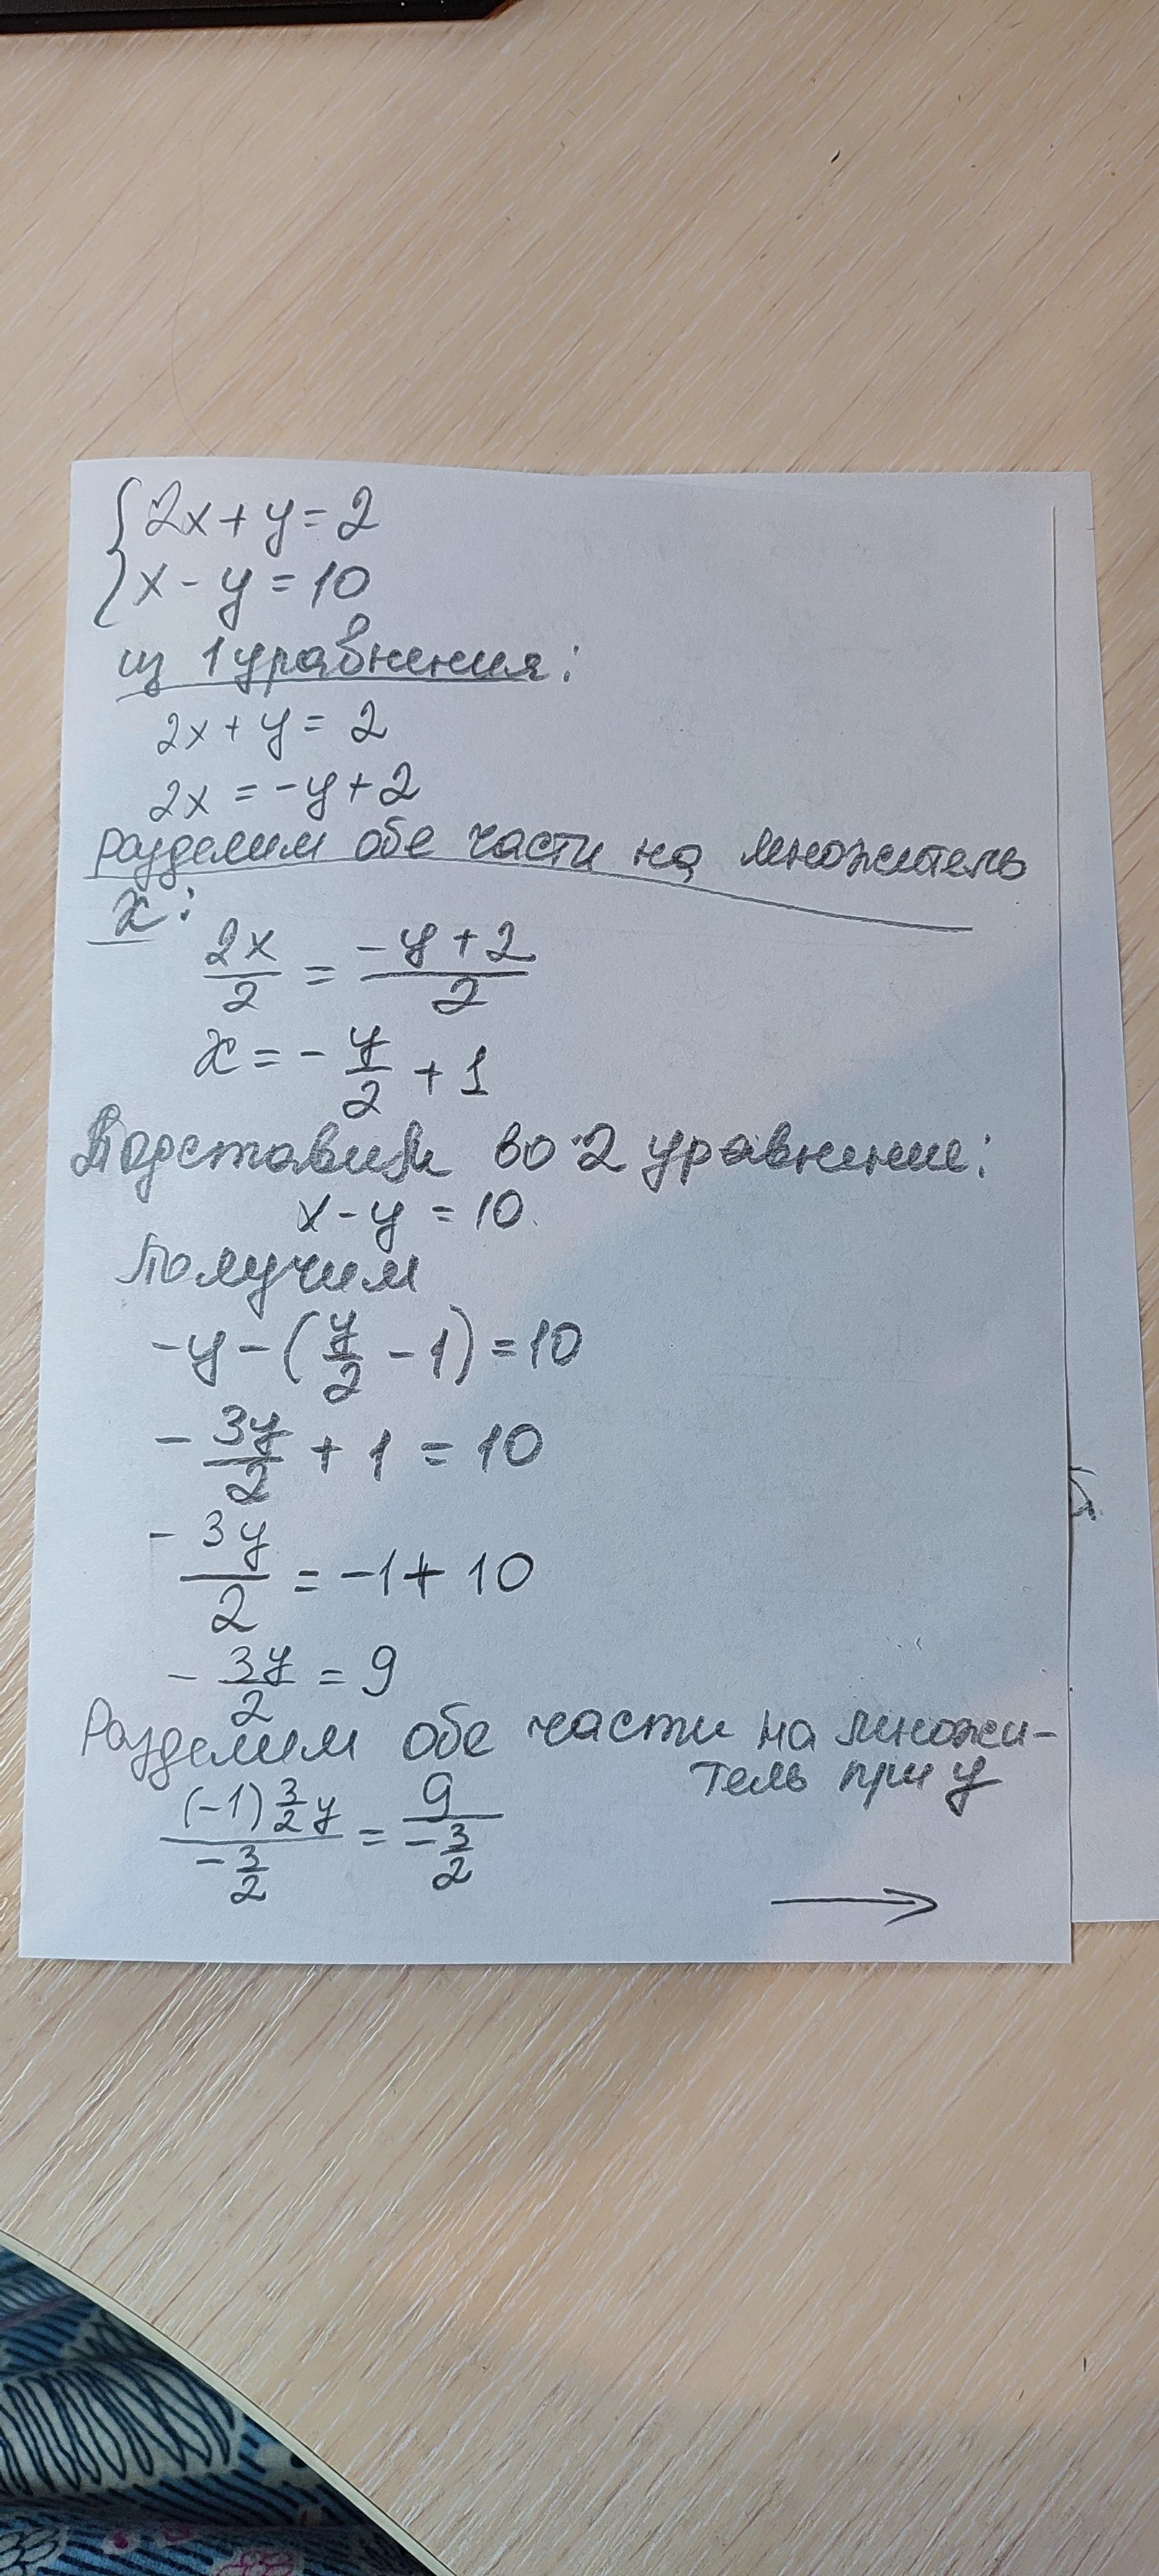 {2x + y = 2
{x - y = 10
из 1 уравнения:
2x + y = 2
2x = -y + 2
разделим обе части на множитель
x:
2x/2 = (-y + 2)/2
x = - y/2 + 1
Подставим во 2 уравнение:
x - y = 10
Получим
-y - (y/2 - 1) = 10
- 3y/2 + 1 = 10
- 3y/2 = -1 + 10
- 3y/2 = 9
Разделим обе части на множи-
тель при y
(-1) 3/2 y / (- 3/2) = 9 / (- 3/2)
→